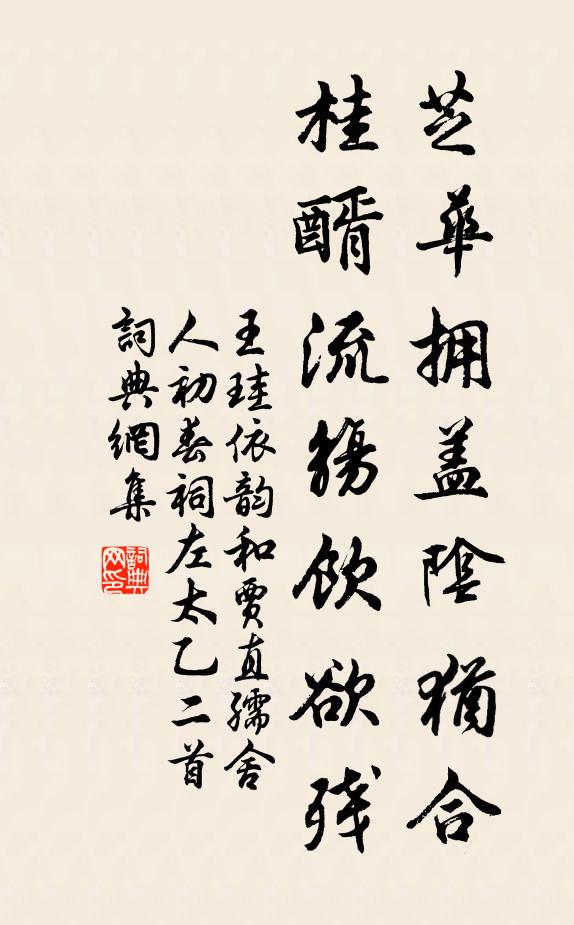 芝華拥盖陰猶合
桂醑流觴飲欲残
王珪依韵和賈直孺舍
人初春祠左太乙二首
詞典網集
詞典网印